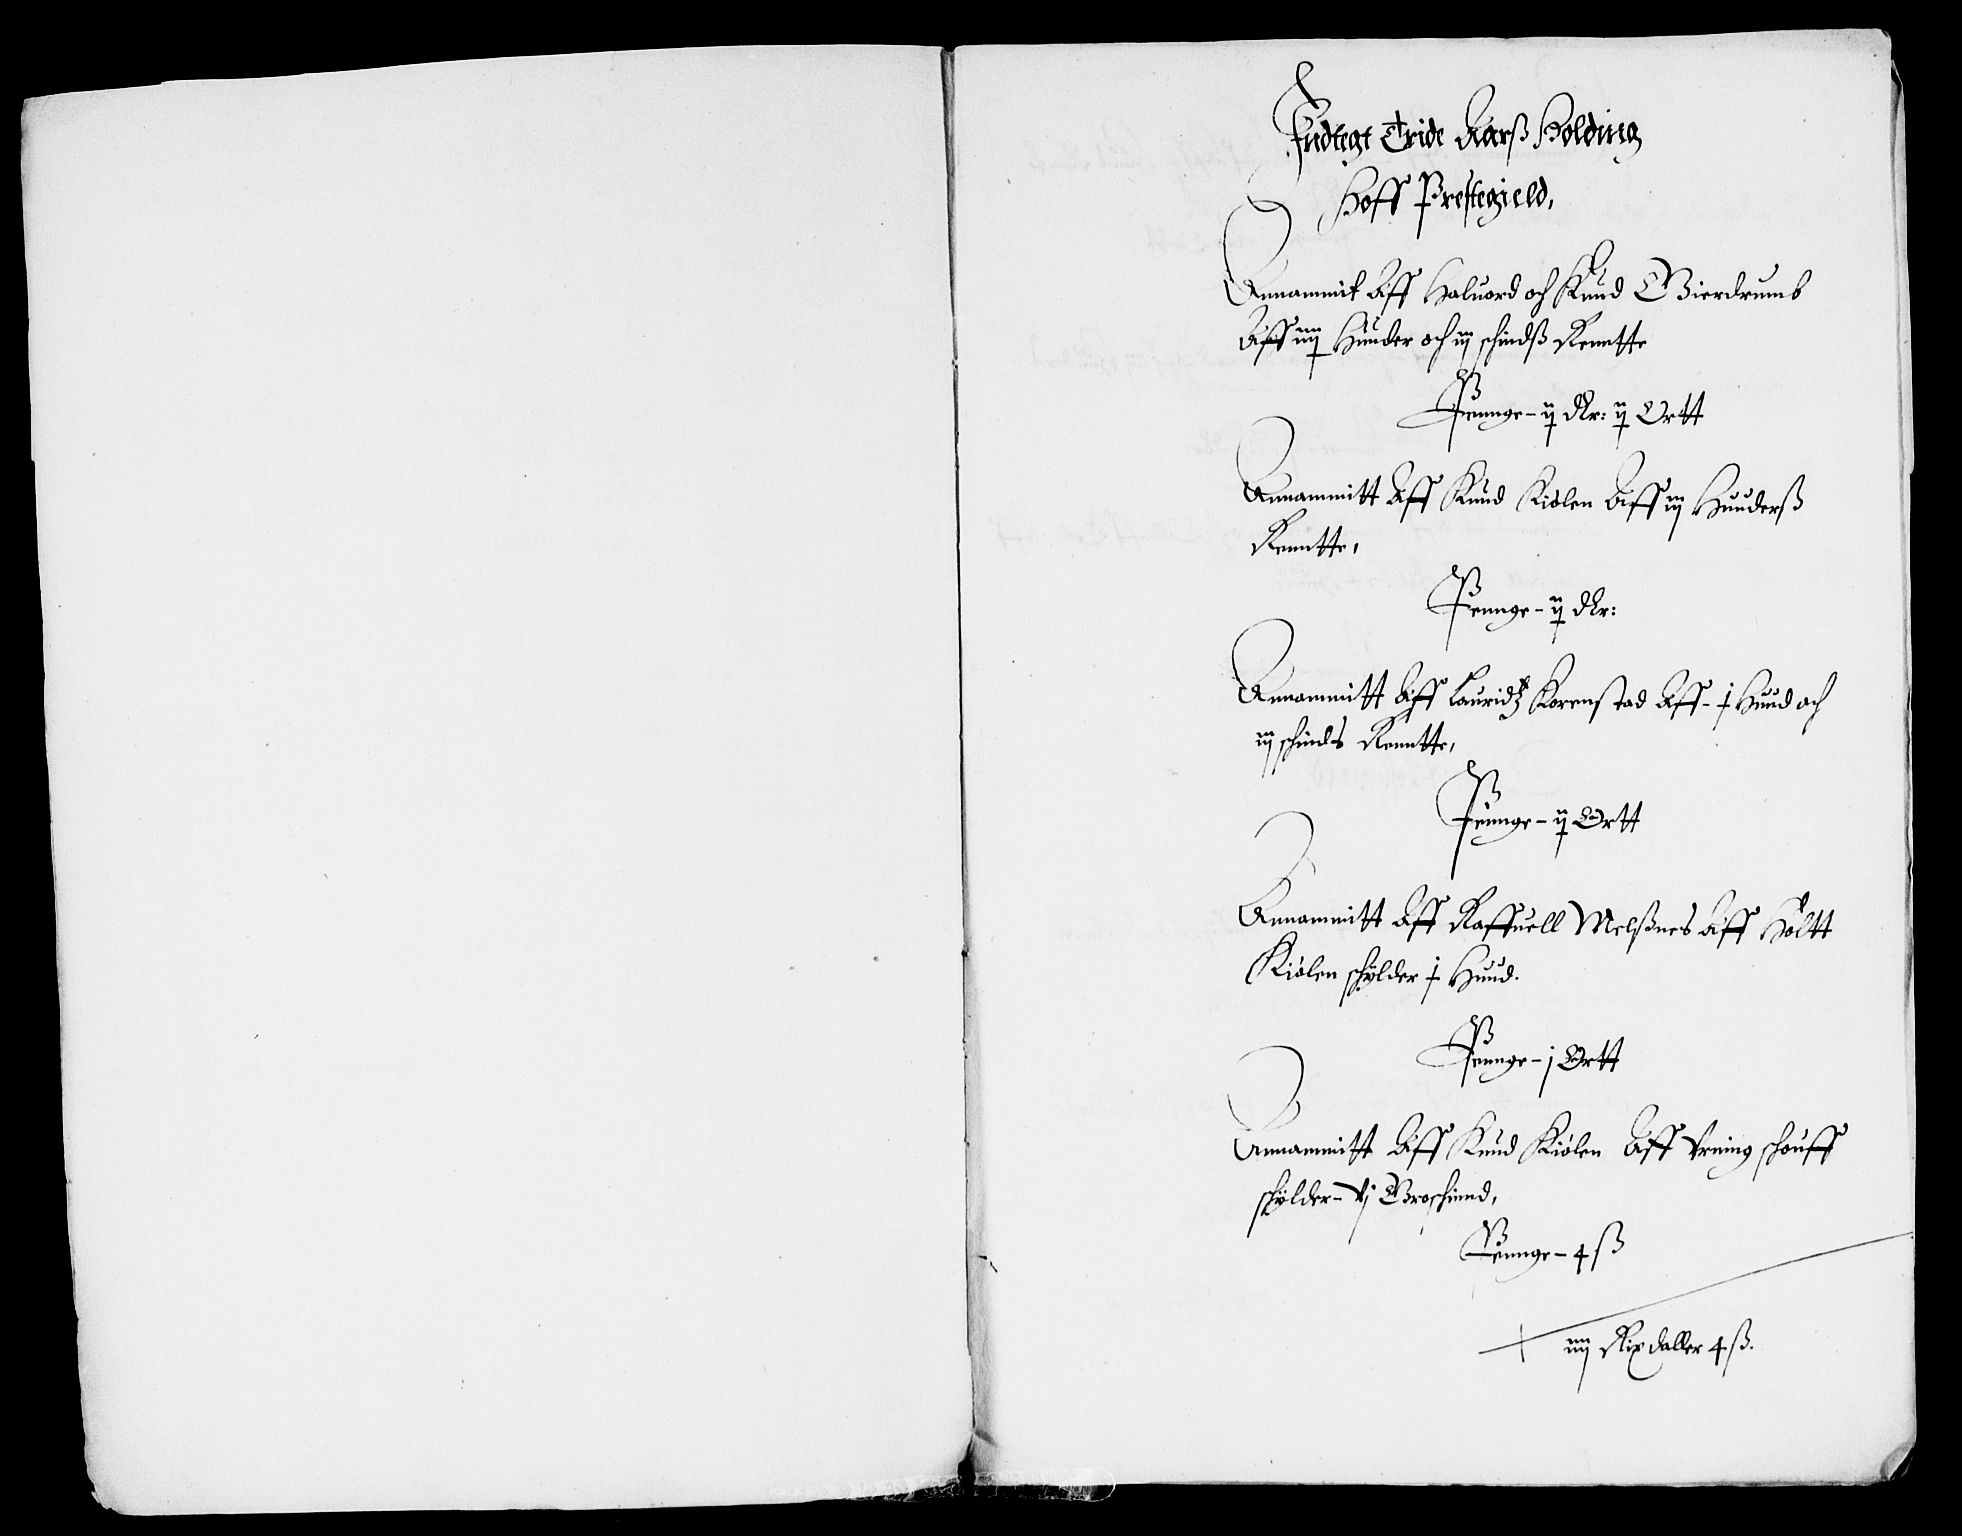 Indtegt Tride Aarß Holding
Hoff Prestegield,
Annammit Aff Haluord och Knud Gierdrumb
Aff iiij Hunder och iij schindß Renntte
Penge - ij dlr: ij Ortt
Annammitt Aff Knud Kiølen Aff iij Hunderß
Renntte,
Penge - ij dlr:
Annammitt Aff Lauridtz Korenstad Aff - j Hund och
iij schinds Renntte,
Penge - ij Ortt
Annammitt Aff Raffuell Melßnes Aff Holtt
Kiølen schylder j Hund.
Penge - j Ortt
Annammitt Aff Knud Kiølen Aff schouff
schylder - vj Groschinnd,
Penge - 4 ß
iiij Rix daller 4 ß.